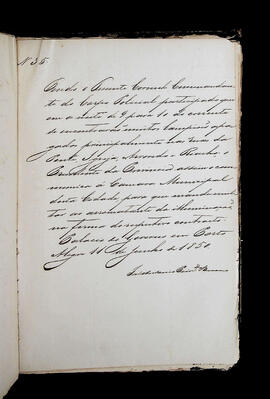 Nº 35
Tendo o Tenente Coronel Commandan-
te do Corpo Policial participado que
em a noite de 9 para 10 do corrente
se encontrarão muitos lampiões apa-
gados principalmente nas ruas da
Ponte, Igreja, Arvoredo e Riacho; o
Presidente da Provincia assim o com-
munica á Camara Municipal
desta Cidade para que mande mul-
tar ao arrematante da illuminação
na forma do respectivo contracto.
Palacio do Governo em Porto
Alegre 11 de Junho de 1850